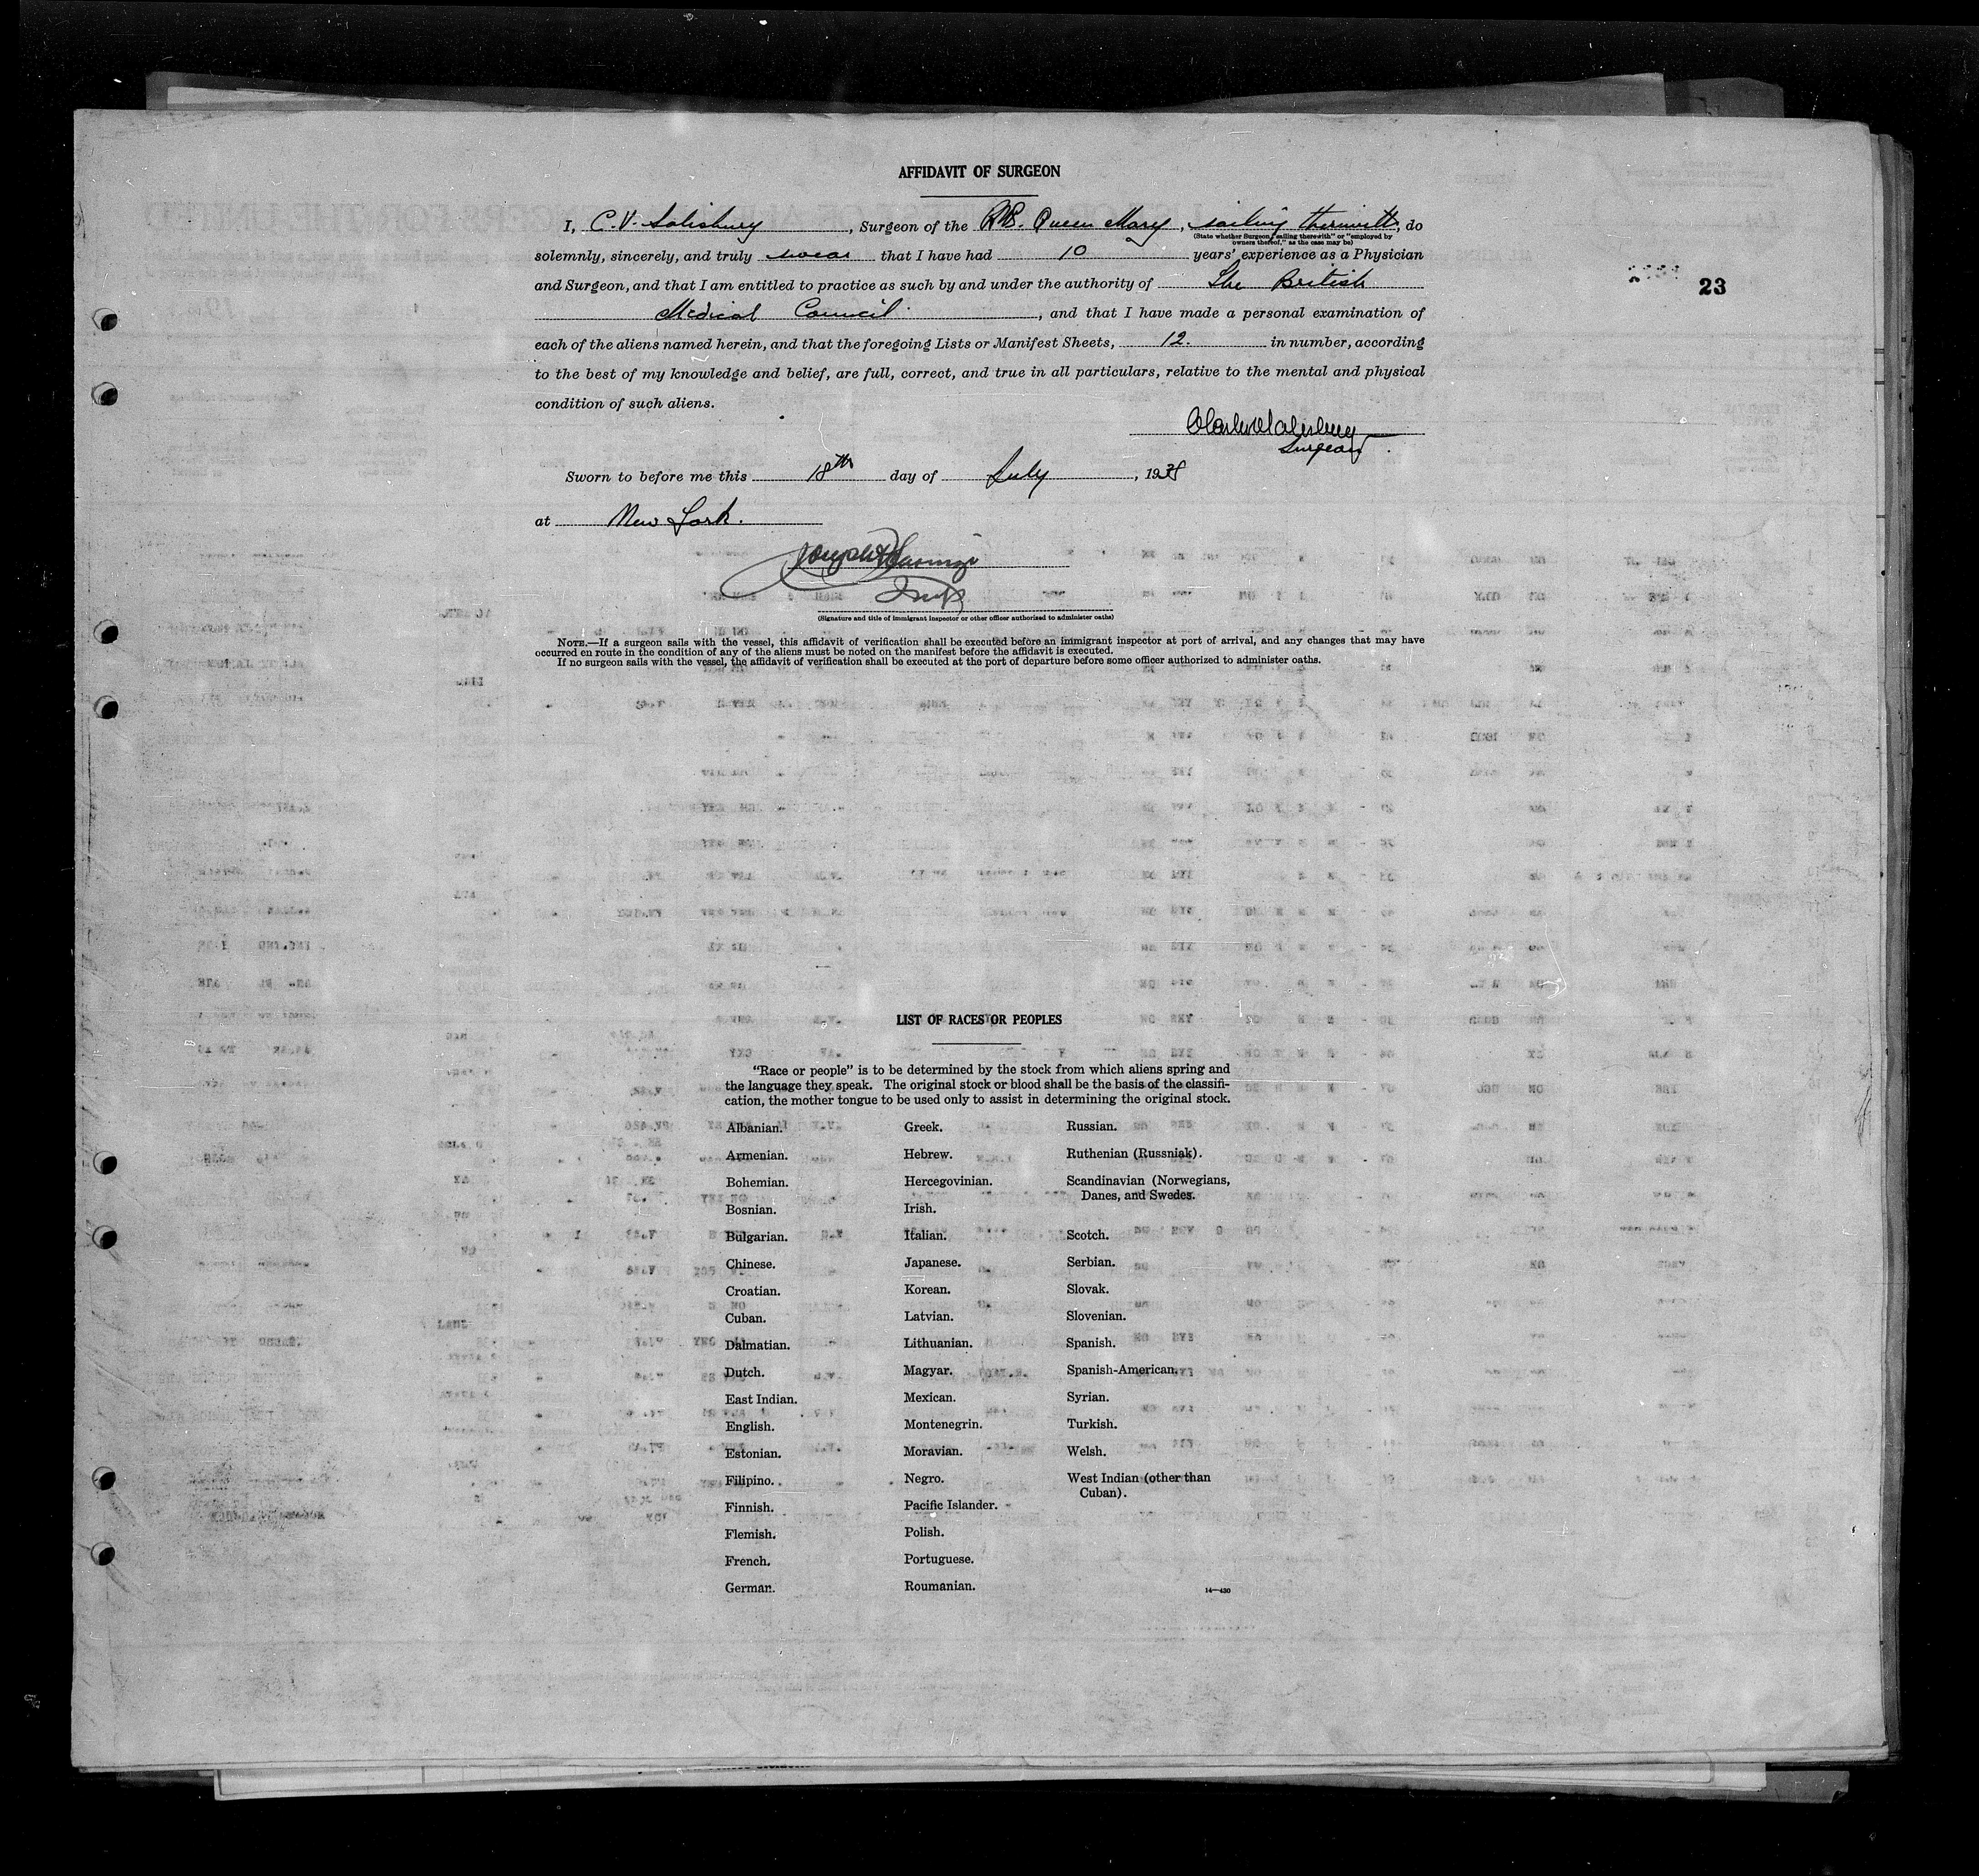 AFFIDAVIT OF SURGEON
I, C. V. Salisbury, Surgeon of the RMS. Queen Mary, sailing therewith, do
(State whether Surgeon "sailing therewith" or "employed by
owners thereof," as the case may be)
solemnly, sincerely, and truly swear that I have had 10 years' experience as a Physician
and Surgeon, and that I am entitled to practice as such by and under the authority of The British
Medical Council, and that I have made a personal examination of
each of the aliens named herein, and that the foregoing Lists or Manifest Sheets, 12. in number, according
to the best of my knowledge and belief, are full, correct, and true in all particulars, relative to the mental and physical
condition of such aliens.
Surgeon.
Sworn to before me this 18th day of July, 1938
at New York.
(Signature and title of immigrant inspector or other officer authorized to administer oaths)
NOTE.—If a surgeon sails with the vessel, this affidavit of verification shall be executed before an immigrant inspector at port of arrival, and any changes that may have
occurred en route in the condition of any of the aliens must be noted on the manifest before the affidavit is executed.
If no surgeon sails with the vessel, the affidavit of verification shall be executed at the port of departure before some officer authorized to administer oaths.
23
LIST OF RACES OR PEOPLES
"Race or people" is to be determined by the stock from which aliens spring and
the language they speak. The original stock or blood shall be the basis of the classifi-
cation, the mother tongue to be used only to assist in determining the original stock.
Albanian.
Armenian.
Bohemian.
Bosnian.
Bulgarian.
Chinese.
Croatian.
Cuban.
Dalmatian.
Dutch.
East Indian.
English.
Estonian.
Filipino.
Finnish.
Flemish.
French.
German.
Greek.
Hebrew.
Hercegovinian.
Irish.
Italian.
Japanese.
Korean.
Latvian.
Lithuanian.
Magyar.
Mexican.
Montenegrin.
Moravian.
Negro.
Pacific Islander.
Polish.
Portuguese.
Roumanian.
Russian.
Ruthenian (Russniak).
Scandinavian (Norwegians,
Danes, and Swedes.
Scotch.
Serbian.
Slovak.
Slovenian.
Spanish.
Spanish-American.
Syrian.
Turkish.
Welsh.
West Indian (other than
Cuban).
14—430